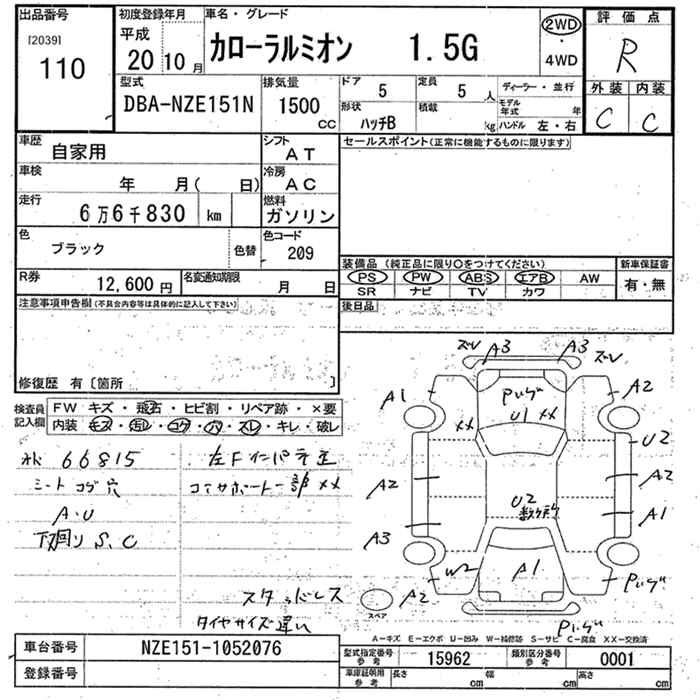 出品番号
[2039]
110
初度登録年月
平成
20 10 月
車名・グレード
カローラルミオン 1.5G
2WD
・
4WD
評価点
R
外装 内装
C C
型式
DBA-NZE151N
排気量
1500
CC
ドア 5
定員 5 人
ディーラー・並行
形状 ハッチB
積載 kg
モデル年式 年
ハンドル 左・右
車歴
自家用
シフト
AT
セールスポイント(正常に機能するものに限ります)
車検
年 月( 日)
冷房
AC
走行
6万6千830 km
燃料
ガソリン
色
ブラック
色替
色コード
209
装備品 (純正品に限り○をつけてください)
新車保証書
PS PW ABS エアB AW
SR ナビ TV カワ
有・無
R券
12,600円
名変通知期限
月 日
後日品
注意事項申告欄(不具合内容等は具体的に記入して下さい)
修復歴 有〔箇所 〕
検査員
記入欄
FW キズ・飛石・ヒビ割・リペア跡・×要
内装 キズ・汚レ・コゲ・穴・スレ・キレ・破レ
66815
シートコゲ穴
A.U
下回りS.C
左Fインパネ歪
コアサポート一部XX
スタッドレス
タイヤサイズ違い
ズレ A3 A3 ズレ
A1 A2
XX U1 XX
U2
A2 A2
U2
A3 A1
W2 A1
A2
スペア
A-キズ E-エクボ U-凹み W-補修跡 S-サビ C-腐食 XX-交換済
車台番号
NZE151-1052076
登録番号
型式指定番号
参考
15962
類別区分番号
参考
0001
車庫証明用
参考
長さ cm
幅 cm
高さ cm